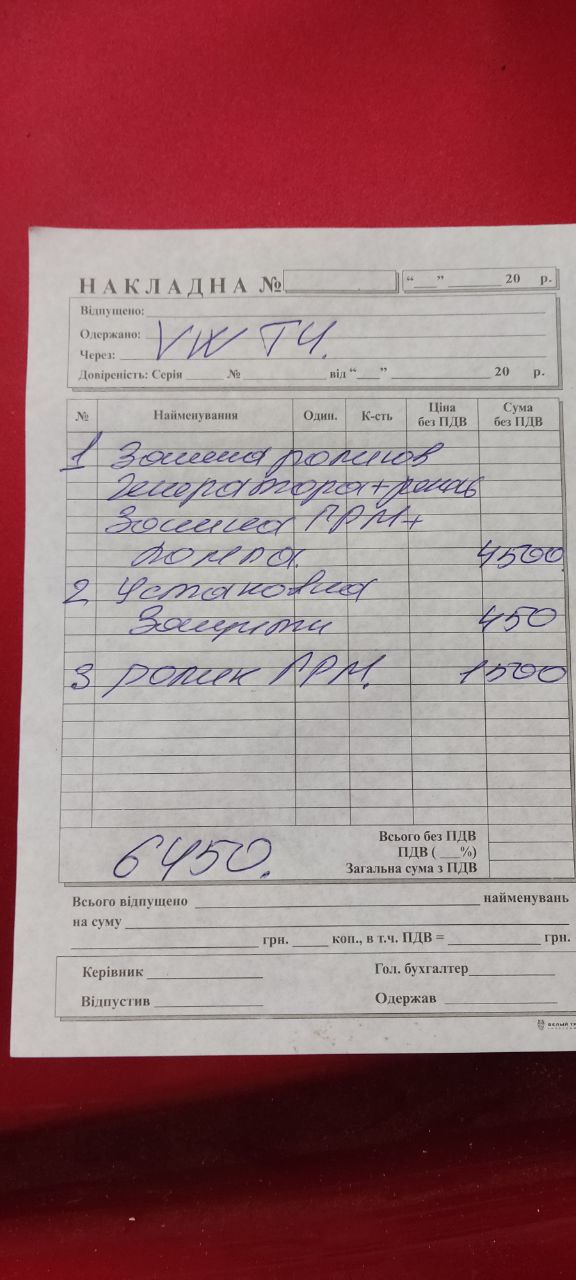 НАКЛАДНА № “___” ________ 20 р.
Відпущено:
Одержано: VW T4.
Через:
Довіреність: Серія ______ № ________ від “___” ________ 20 р.
№ Найменування Один. К-сть Ціна без ПДВ Сума без ПДВ
1 Замена роликов
Генератора + ремень
Замена ГРМ +
помпа. 4500.
2 Установка
Защиты 450
3 ролик ГРМ. 1500
6450.
Всього без ПДВ
ПДВ ( ___%)
Загальна сума з ПДВ
Всього відпущено ________ найменувань
на суму
________ грн. _____ коп., в т.ч. ПДВ = ________ грн.
Керівник ________ Гол. бухгалтер ________
Відпустив ________ Одержав ________